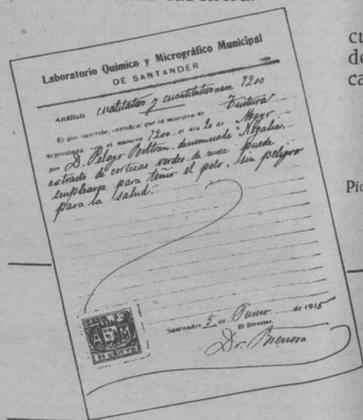 Laboratorio Químico y Micrográfico Municipal
DE SANTANDER
Análisis cualitativo y cuantitativo núm. 7200
El que suscribe, certifica: que la muestra de Tintura
depositada con el número 7200 el día 20 de Mayo
por D. Pelayo Beltrán denominada Negalia
extracto de cortezas verdes de nuez puede
emplearse para teñir el pelo, sin peligro
para la salud.
Santander 5 de Junio de 1915
El Director,
Dr. Breñosa
cu
de
ca
Pid